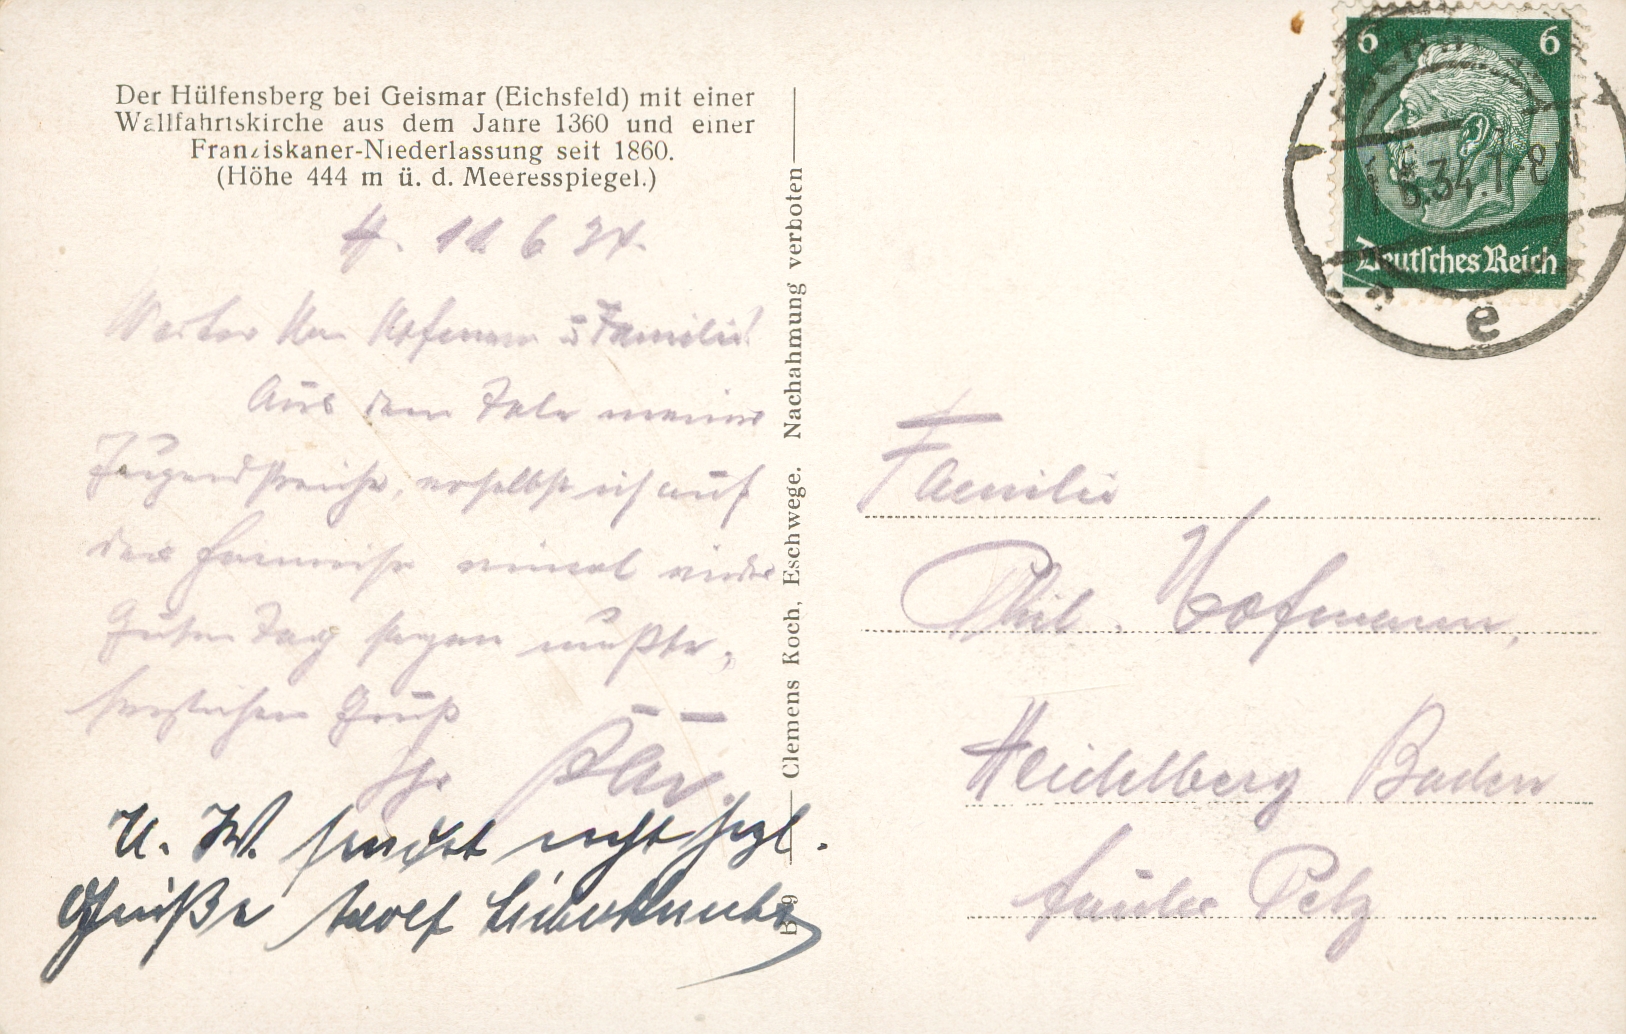 Der Hülfensberg bei Geismar (Eichsfeld) mit einer
Wallfahrtskirche aus dem Jahre 1360 und einer
Franziskaner-Niederlassung seit 1860.
(Höhe 444 m ü. d. Meeresspiegel.)
H. 11. 6 34.
Werter Herr Hofmann u Familie!
Aus dem Tale meiner
Jugendstreiche, woselbst ich auf
der Heimreise einmal wieder
Guten Tag sagen mußte,
herzlichen Gruß
Ihr
U. W. sendet recht hrzl.
Grüße Adolf
B 9 Clemens Koch, Eschwege. Nachahmung verboten
6 6
34.
Deutsches Reich
e
Familie
Phil. Hofmann,
Heidelberg Baden
fauler Pelz